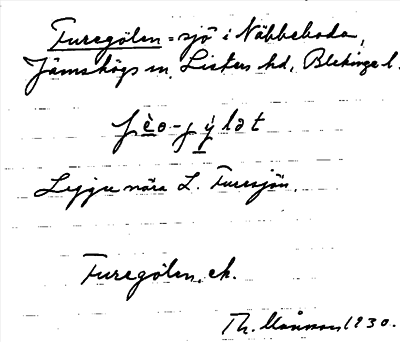 Furegölen = sjö i Näbbeboda,
Jämshögs sn, Listers hd, Blekinge l.
Ligger nära L. Furesjön.
Furegölen, ek.
Th. 1930.